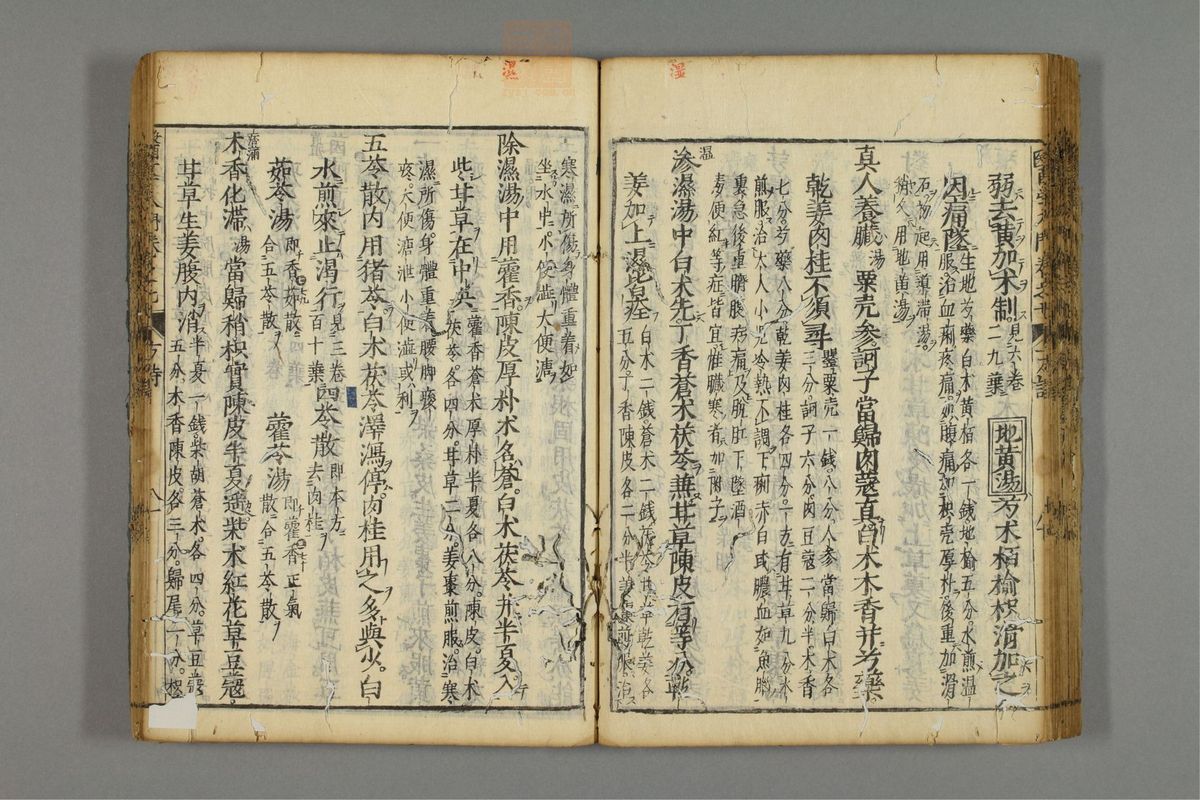 弱去黄加朮制見六卷二九葉 地黄湯芍朮栢榆枳滑加之
因痛墜生地芍藥白朮黄栢各一錢地榆五分水煎温
服治血痢疼痛如腹痛加枳壳厚朴後重加滑
石初起用導滯湯
稍久用地黄湯
真人養臟湯粟壳參訶子當歸肉蔻真白朮木香并芍藥
乾姜肉桂不須尋罌粟壳一錢八分人參當歸白朮各
三分訶子六分肉豆蔻二分半木香
七分芍藥八分乾姜肉桂各四分一方有甘草九分水
煎服治大人小児冷熱不調下痢赤白或膿血如魚腦
裏急後重臍腹㽲痛及脱肛下墜酒
毒便紅等症皆宜惟臟寒者加附子
滲濕湯中白朮先丁香蒼朮茯苓兼甘草陳皮有等分乾
姜加上濕皆
白朮二錢蒼朮二錢茯苓甘草乾姜各
五分丁香陳皮各二分半
寒濕所傷身體重着如
坐水中小便澁大便溏
除濕湯中用藿香陳皮厚朴朮名蒼白朮茯苓并半夏入
些甘草在中央藿香蒼朮厚朴半夏各八分陳皮白朮
茯苓各四分甘草二分姜棗煎服治寒
濕所傷身體重着腰脚痠
疼大便溏泄小便澁或利
五苓散内用猪苓白朮茯苓澤瀉停肉桂用之多與少白
水煎來止渴行見三卷百十葉 四苓散即本方去肉桂
茹苓湯即香茹散合五苓散 藿苓湯即藿香正氣散合五苓散
木香化滯湯當歸稍枳實陳皮半夏遥柴朮紅花草豆蔻
甘草生姜腹内消半夏一錢柴胡蒼朮各四分草豆蔻
五分木香陳皮各三分歸尾二分